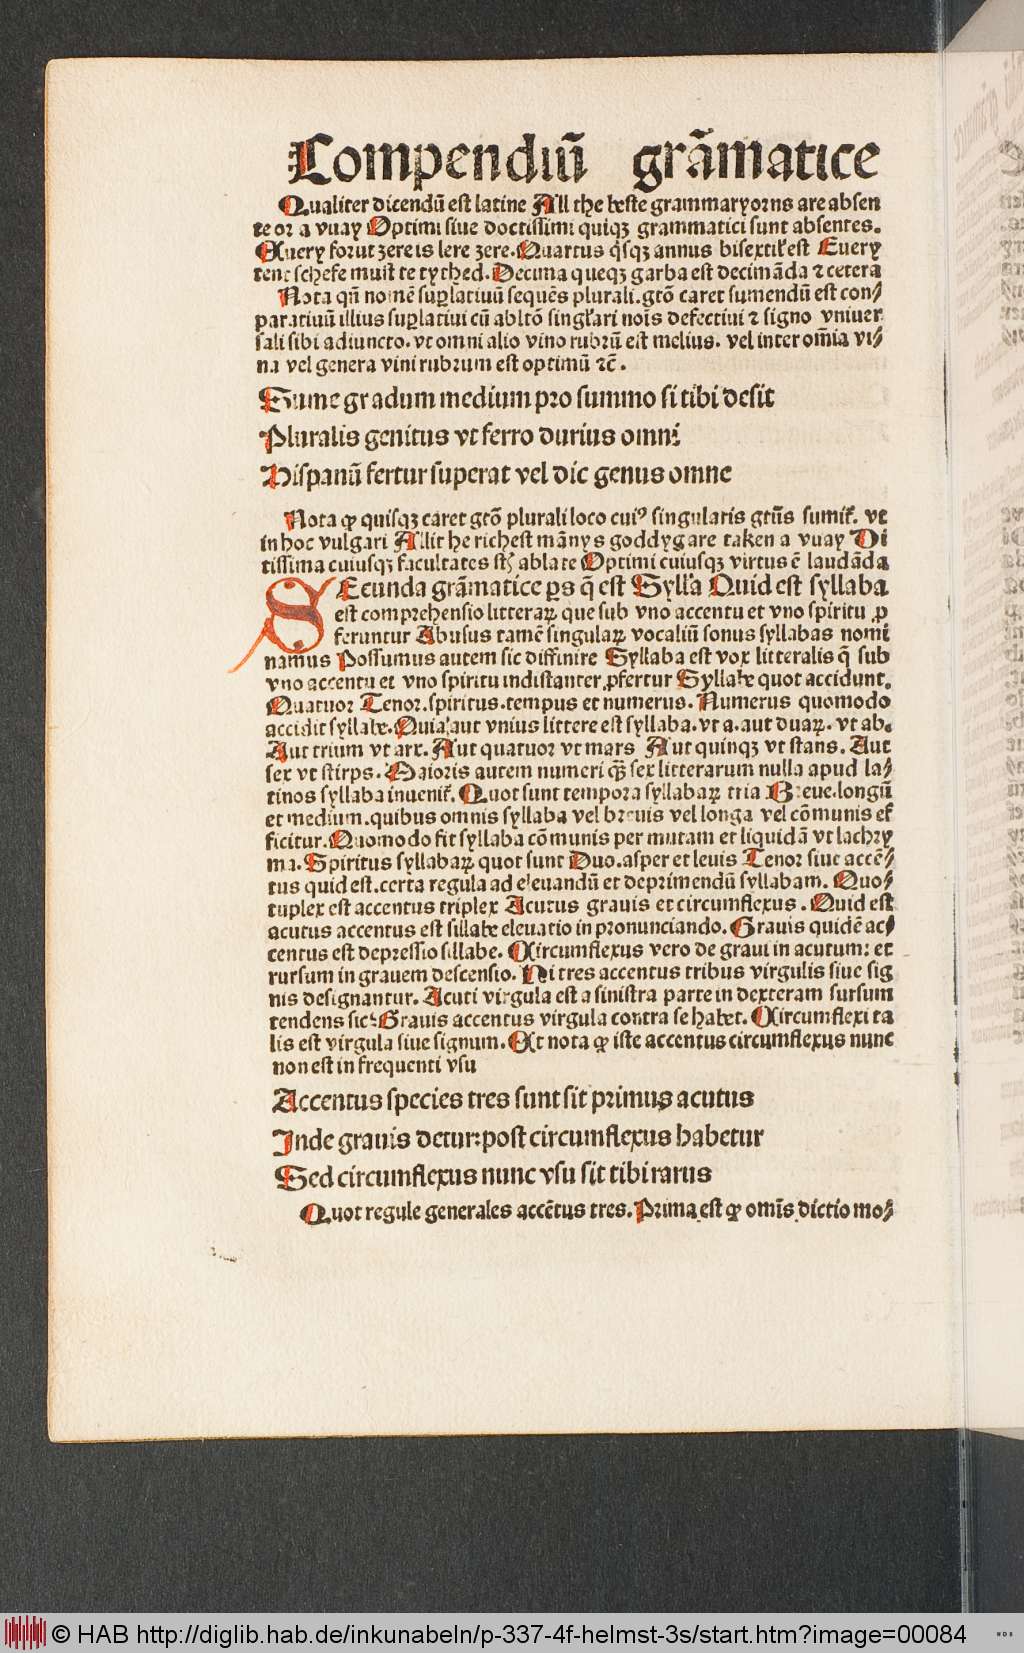 Compendiū grāmatice
Qualiter dicendū est latine All the beste grammaryons are absen
te or a vuay Optimi siue doctissimi quiqꝫ grammatici sunt absentes.
Euery forut ȝere is lepe ȝere. Quartus q̄sqꝫ annus bisextil̛ est Euery
tent schefe must be tythed. Decima queqꝫ garba est decimāda ⁊ cetera
Nota qn̄ nomē suꝑlatiuū sequēs plurali.gtō caret sumendū est con⸗
paratiuū illius suꝑlatiui cū abltō singl̛ari noīs defectiui ⁊ signo vniuer
sali sibi adiuncto. vt omni alio vino rubrū est melius. vel inter om̄ia vi⸗
na vel genera vini rubrum est optimū ⁊c̄.
Sume gradum medium pro summo si tibi desit
Pluralis genitus vt ferro durius omni
Hispanū fertur superat vel dic genus omne
Nota ꝙ quisqꝫ caret gtō plurali loco cuiꝰ singularis gtūs sumit̛. vt
in hoc vulgari All the richest mānys goddys are taken a vuay Di
tissima cuiusqꝫ facultates st̄ ablate Optimi cuiusqꝫ virtus ē laudāda
SEcunda grāmatice ꝑs q̄ est Sylla Quid est syllaba
est comprehensio litteraꝝ que sub vno accentu et vno spiritu ꝓ
feruntur Abusus tamē singulaꝝ vocaliū sonus syllabas nomi
namus Possumus autem sic diffinire Syllaba est vox litteralis q̄ sub
vno accentu et vno spiritu indistanter ꝓfertur Syllabe quot accidunt.
Quatuor Tenor.spiritus.tempus et numerus. Numerus quomodo
accidit syllabe. Quia aut vnius littere est syllaba. vt a. aut duaꝝ. vt ab.
Aut trium vt arx. Aut quatuor vt mars Aut quinqꝫ vt stans. Aut
sex vt stirps. Maioris autem numeri qꝫ̄ sex litterarum nulla apud la⸗
tinos syllaba inuenit̛. Quot sunt tempora syllabaꝝ tria Breue.longū
et medium.quibus omnis syllaba vel breuis vel longa vel cōmunis ef
ficitur. Quomodo fit syllaba cōmunis per mutam et liquidā vt lachry
ma. Spiritus syllabaꝝ quot sunt Duo.asper et leuis Tenor siue accē⸗
tus quid est.certa regula ad eleuandū et deprimendū syllabam. Quo⸗
tuplex est accentus triplex Acutus grauis et circumflexus. Quid est
acutus accentus est sillabe eleuatio in pronunciando. Grauis quidē ac⸗
centus est depressio sillabe. Circumflexus vero de graui in acutum: et
rursum in grauem descensio. Hi tres accentus tribus virgulis siue sig
nis designantur. Acuti virgula est a sinistra parte in dexteram sursum
tendens sic: Grauis accentus virgula contra se habet. Circumflexi ta
lis est virgula siue signum. Et nota ꝙ iste accentus circumflexus nunc
non est in frequenti vsu
Accentus species tres sunt sit primus acutus
Inde grauis detur:post circumflexus habetur
Sed circumflexus nunc vsu sit tibi rarus
Quot regule generales accētus tres. Prima est ꝙ omīs dictio mo⸗
© HAB http://diglib.hab.de/inkunabeln/p-337-4f-helmst-3s/start.htm?image=00084